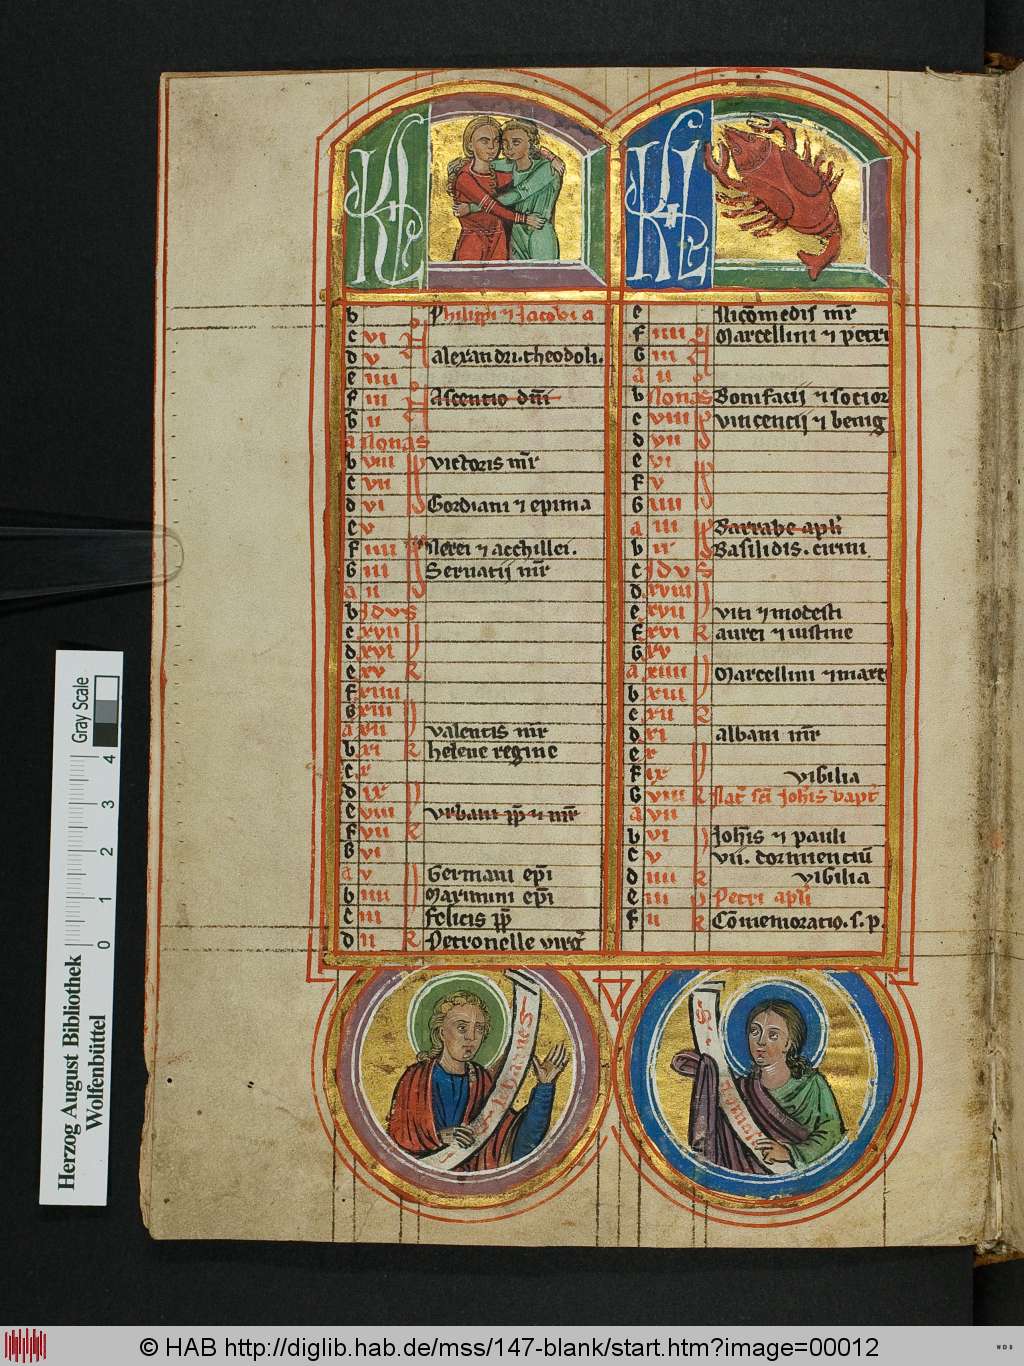 KL
b Philippi ⁊ Jacobi a
c vi No
d v alexandri. theodoli.
e iiii
f iii No Ascentio dnı̄
G ii
a Nonas
b viii Victoris mr̄
c vii
d vi Gordiani ⁊ epima
e v
f iiii Nerei ⁊ acchillei.
G iii Seruatij mr̄
a ii
b Jdus
c xvii
d xvi
e xv k
f xiiii
G xiii
a xii valentis mr̄
b xi k helene regine
c x
d ix
e viii vrbani pp̄ ⁊ mr̄
f vii k
G vi
a v Germani epı̄
b iiii Maximini epı̄
c iii felicis pp̄
d ii k Petronelle virḡ
KL
e Nicōmedis mr̄
f iiii No Marcellini ⁊ petri
G iii
a ii
b Nonas Bonifacij ⁊ socior
c viii vincencij ⁊ benig
d vii
e vi
f v
G iiii
a iii Barrabe apl̄i
b ii Basilidis. cirini
c Jdus
d xviii
e xvii viti ⁊ modesti
f xvi k aurei ⁊ iustine
G xv
a xiiii Marcellini ⁊ marc
b xiii
c xii k
d xi albani mr̄
e x
f ix vigilia
G viii k Nat̄ sc̄i Joh̄is bapt̄
a vii
b vi Joh̄is ⁊ pauli
c v vii. dormienciū
d iiii k vigilia
e iii Petri apl̄i
f ii k Cōmemoratio. s. p.
S. Johannes
S. 
Herzog August Bibliothek
Wolfenbüttel
Gray Scale
0 1 2 3 4
© HAB http://diglib.hab.de/mss/147-blank/start.htm?image=00012